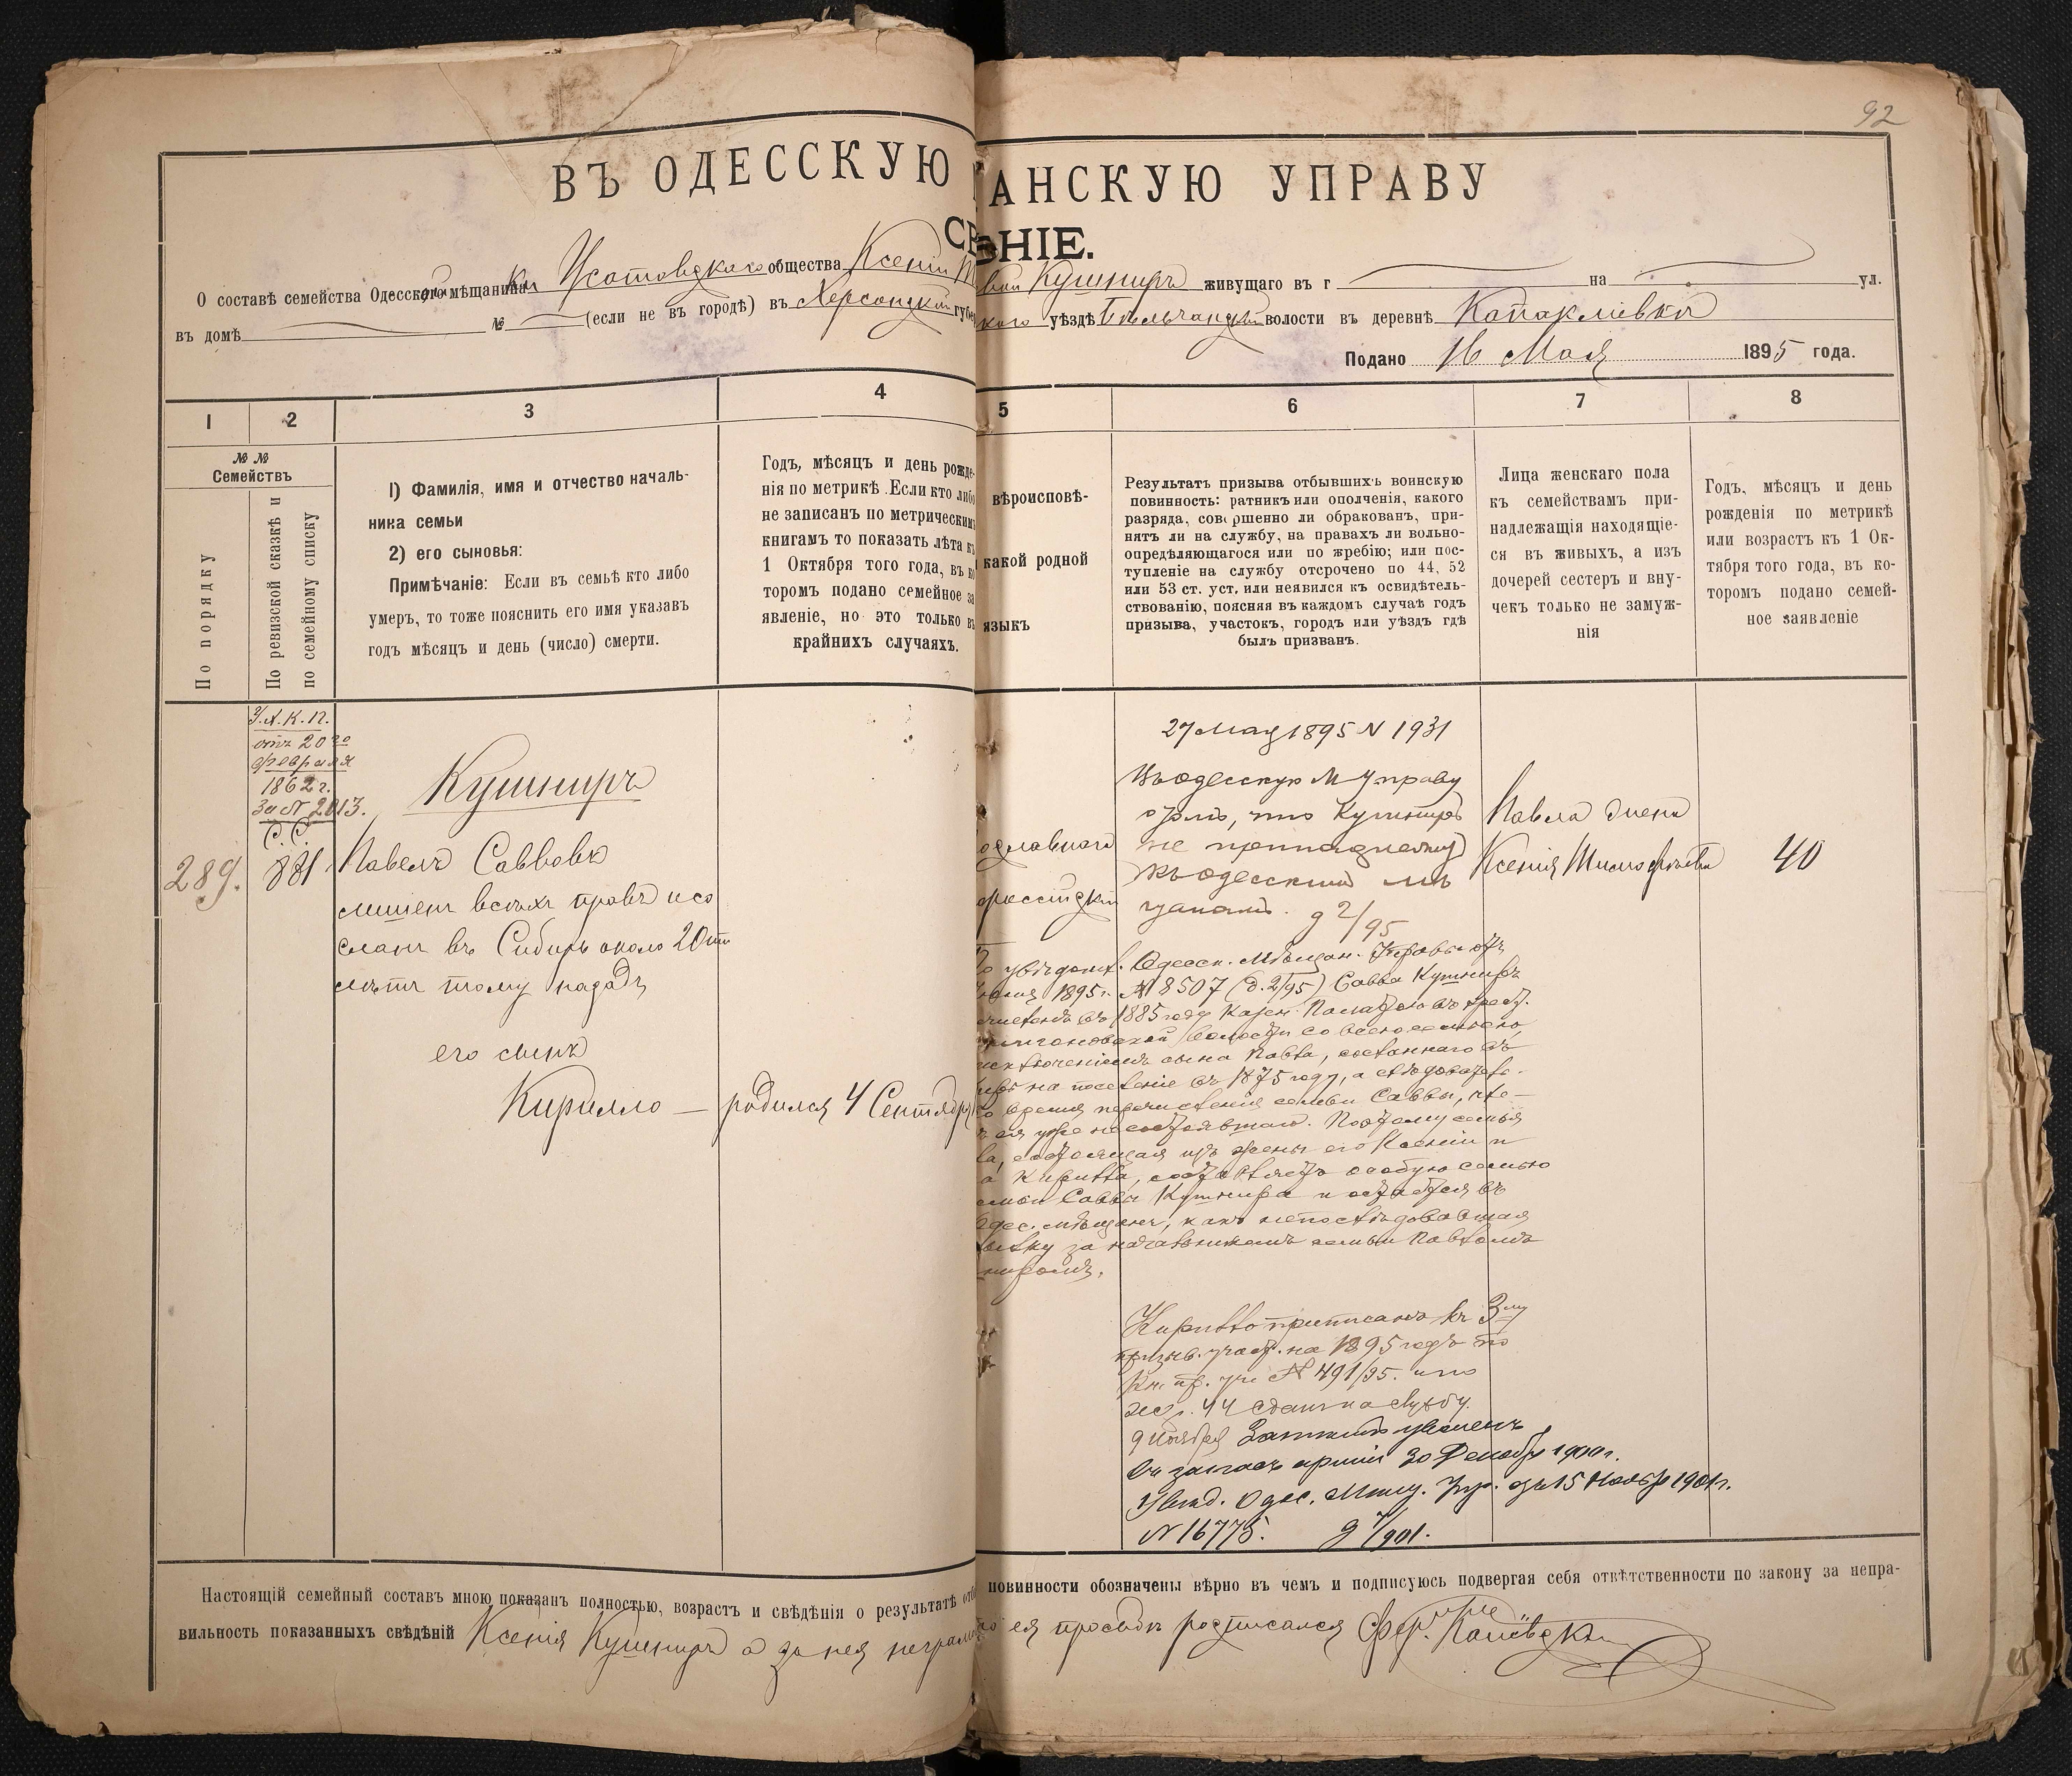 92
ВЪ ОДЕССКУЮ
АНСКУЮ УПРАВУ
ЕНІЕ.
О составѣ семейства Одесского мѣщанина Усатовскаго общества Ксеніи
Кушниръ живущаго въ г на ул.
въ домѣ № (если не въ городѣ) въ Херсонской губе
уѣздѣ волости въ деревнѣ
Подано 16 Мая 1895 года.
1
2
3
4
5
6
7
8
№ №
Семействъ
По порядку
По ревизской сказкѣ и
по семейному списку
1) Фамилія, имя и отчество началь-
ника семьи
2) его сыновья:
Примѣчаніе: Если въ семьѣ кто либо
умеръ, то тоже пояснить его имя указавъ
годъ мѣсяцъ и день (число) смерти.
Годъ, мѣсяцъ и день рожде-
нія по метрикѣ. Если кто либо
не записанъ по метрическимъ
книгамъ то показать лѣта къ
1 Октября того года, въ ко
торомъ подано семейное за
явленіе, но это только въ
крайнихъ случаяхъ.
вѣроисповѣ-
какой родной
языкъ
Результатъ призыва отбывшихъ воинскую
повинность: ратникъ или ополченія, какого
разряда, совершенно ли обракованъ, при-
нятъ ли на службу, на правахъ ли вольно-
опредѣляющагося или по жребію; или пос-
тупленіе на службу отсрочено по 44, 52
или 53 ст. уст. или неявился къ освидѣтель-
ствованію, поясняя въ каждомъ случаѣ годъ
призыва, участокъ, городъ или уѣздъ гдѣ
былъ призванъ.
Лица женскаго пола
къ семействамъ при-
надлежащія находящіе-
ся въ живыхъ, а изъ
дочерей сестеръ и вну-
чекъ только не замуж-
нія
Годъ, мѣсяцъ и день
рожденія по метрикѣ
или возрастъ къ 1 Ок-
тября того года, въ ко-
торомъ подано семей-
ное заявленіе
У.Х.К.П.
отъ 20го
февраля
1862 г.
За № 2013.
С.С.
289.
881
Кушниръ
Павелъ Саввовъ
лишенъ всѣхъ правъ и со
сланъ въ Сибирь около 20ти
лѣтъ тому назадъ
его сынъ
Кирилло — родился 4 Сентября
ославнаго
россійскій
27 Мая 1895 N 1931
Въ Одесскую М Управу
что Кушниръ
не принадлежитъ
къ Одесскимъ мѣ
щанамъ. д 2/95
Одесск. Мѣщан. Управы отъ
1895 г. № 8507 (д. 2/95) Савва Кушниръ
въ 1885 году Казен. Палатою въ крест.
волости со всею семьею,
исключеніемъ сына Павла, сосланнаго въ
на поселеніе въ 1875 году, а слѣдователь-
время перечисленія семьи Саввы, чле-
ея уже не состоявшаго. Поэтому семья
ла, состоящая изъ жены его Ксеніи и
а Кирилла, составляетъ особую семью
семьи Саввы Кушнира и остается въ
Одес. мѣщанъ, какъ непослѣдовавшая
ссылку за начальникомъ семьи Павломъ
ниромъ.
Кирилло приписанъ къ 3му
призыв. участ. на 1895 годъ по
№ 491/95. и по
44 сданъ на службу.
9 Ноября Запасный уволенъ
въ запасъ арміи 30 Декабр 1900 г.
Увѣд. Одес. Мѣщ. Упр. за 15 Ноябр 1901 г.
N 16775. д 7/901.
Павла жена
Ксенія Тимофѣева
40
Настоящій семейный составъ мною показанъ полностью, возрастъ и свѣдѣнія о результатѣ отб
повинности обозначены вѣрно въ чемъ и подписуюсь подвергая себя отвѣтственности по закону за непра-
вильность показанныхъ свѣдѣній Ксенія Кушниръ а за нея неграмот
ея просьбѣ росписался